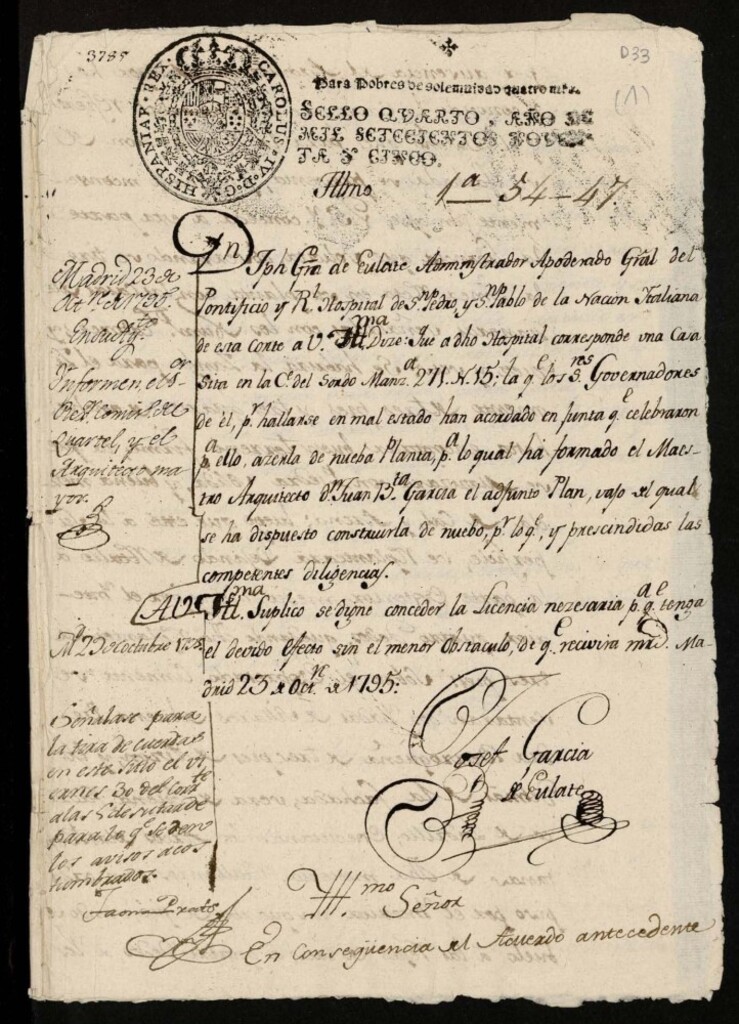 3785
D33
(1)
CAROLUS · IV · D · G · HISPANIAR · REX ·
Para Pobres de solemnidad quatro mrs.
SELLO QVARTO, AÑO DE
MIL SETECIENTOS NOVEN-
TA Y CINCO.
Illmo
1ª 54-47
Dn Jph Gra. de Eulate Administrador Apoderado Gral del
Pontificio y Rl. Hospital de Sn. Pedro, y Sn. Pablo de la Nación Italiana
de esta Corte a V. Illma Dize: Que a dho Hospital corresponde una Casa
sita en la Ce. del Sordo Manza. 271. N. 15; la qe. los Sres. Governadores
de él, pr. hallarse en mal estado han acordado en Junta qe. celebraron
pa. ello, azerla de nueba Planta, pa. lo qual ha formado el Maes-
tro Arquitecto dn. Juan Bta. Garcia el adjunto Plan, vajo del qual
se ha dispuesto construirla de nuebo, pr. lo qe., y prescindidas las
competentes diligencias.
A V. Illma. Suplico se digne conceder la Licencia nezesaria pa. qe. tenga
el devido efecto sin el menor Obstaculo, de qe. recivira mrd. Ma-
drid 23 de Octre. de 1795.
Josef Garcia
de Eulate
Madrid 23 de
Octre. de 1795.
Informen el Sor.
Quartel, y el
Arquitecto ma
yor.
Md. 25 de octubre 1795
Señalase para
la tira de cuerdas
en este sitio el vi
ernes 30 del corrte
a las de la tarde
para lo qe. se den
los avisos acos
tumbrados.
Illmo. Señor
En Conseqüencia del Acuerdo antecedente